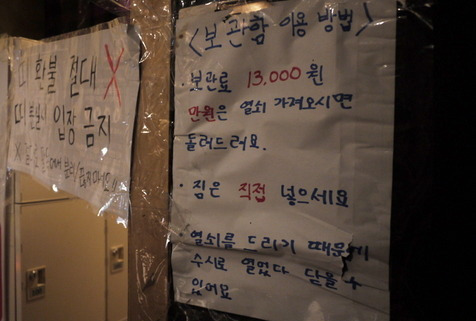 환불 절대 X
입장 금지
<보관함 이용 방법>
· 보관료 13,000원
만원은 열쇠 가져오시면
돌려드려요.
· 짐은 직접 넣으세요
· 열쇠를 드리기 때문에
수시로 열었다 닫을 수
있어요